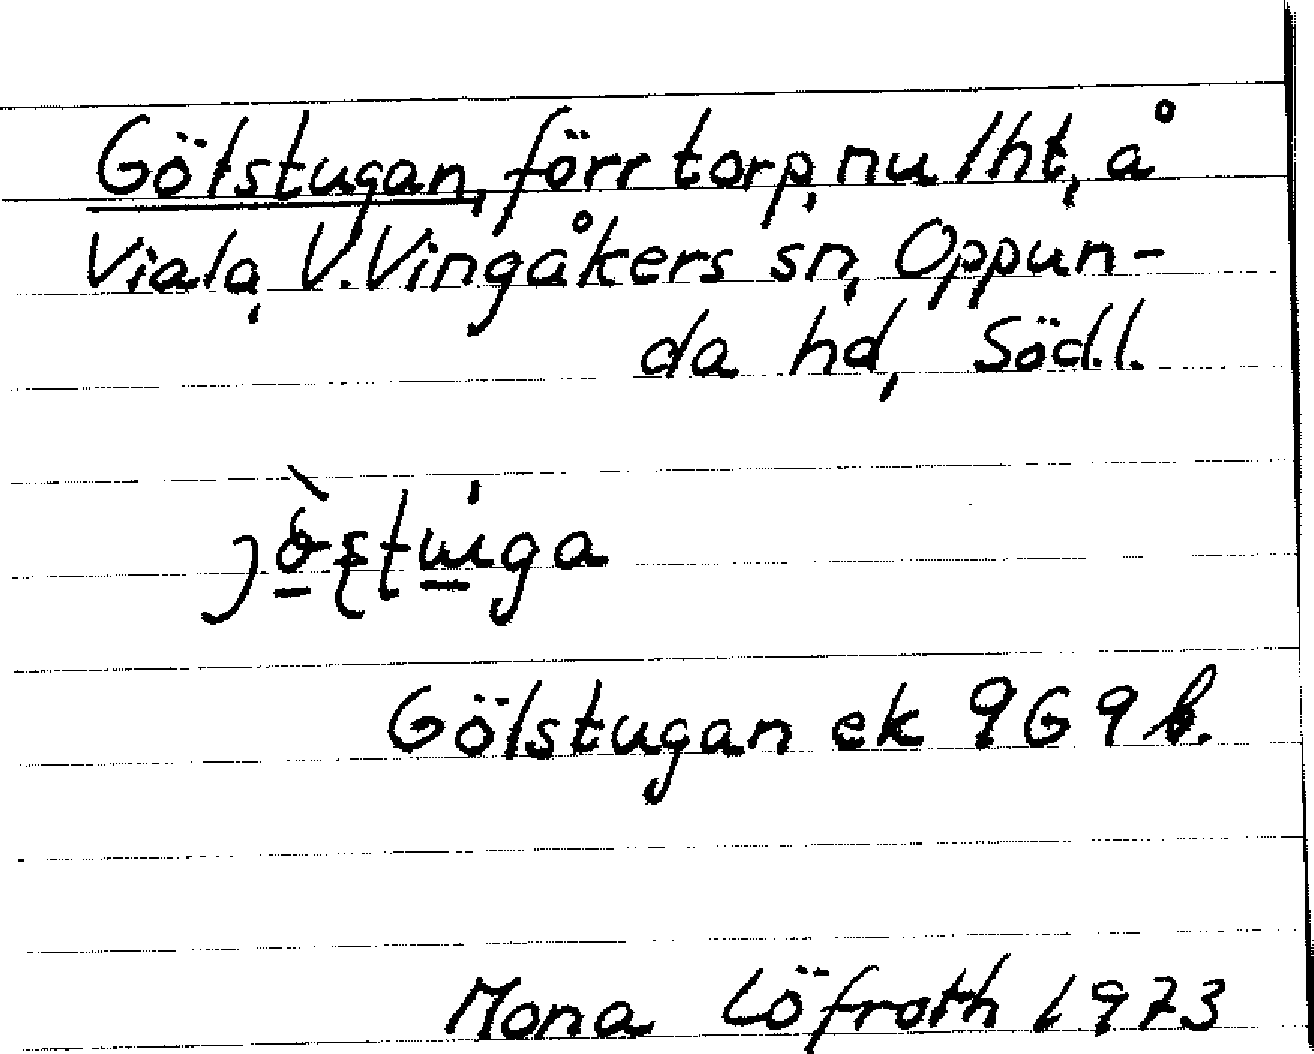 Gölstugan, förr torp, nu lht, å
Viala, V. Vingåkers sn, Oppun-
da hd, Södl.
Gölstugan ek 9G9 b.
Mona Löfroth 1973